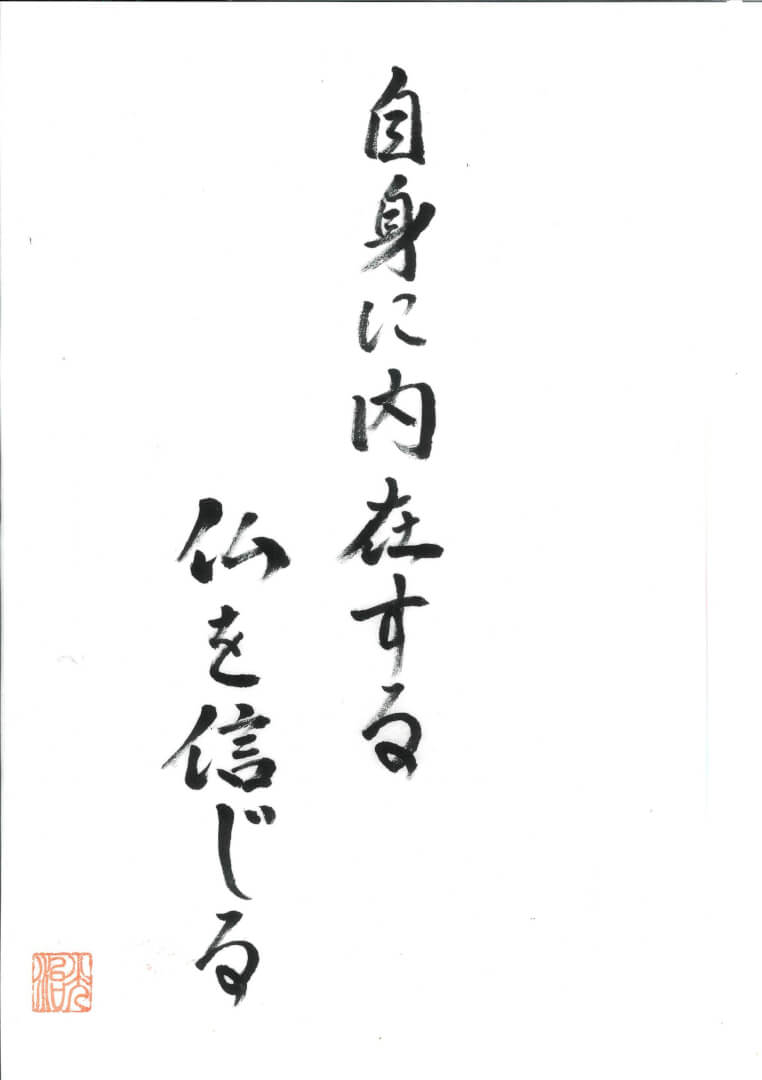 自身に内在する
仏を信じる